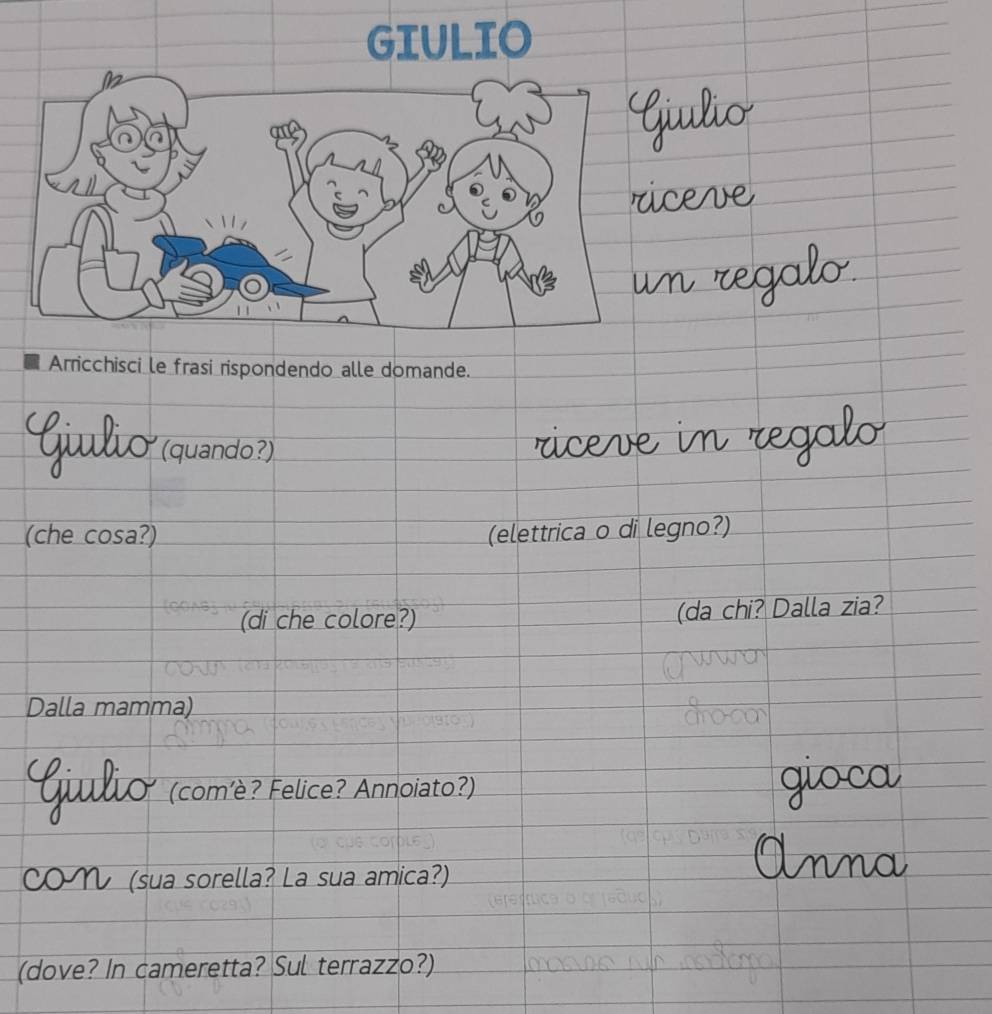 GIULIO
Giulio
riceve
un regalo.
Arricchisci le frasi rispondendo alle domande.
Giulio (quando?) riceve in regalo
(che cosa?) (elettrica o di legno?)
(di che colore?) (da chi? Dalla zia?
Dalla mamma)
Giulio (com'è? Felice? Annoiato?) gioca
con (sua sorella? La sua amica?) Anna
(dove? In cameretta? Sul terrazzo?)